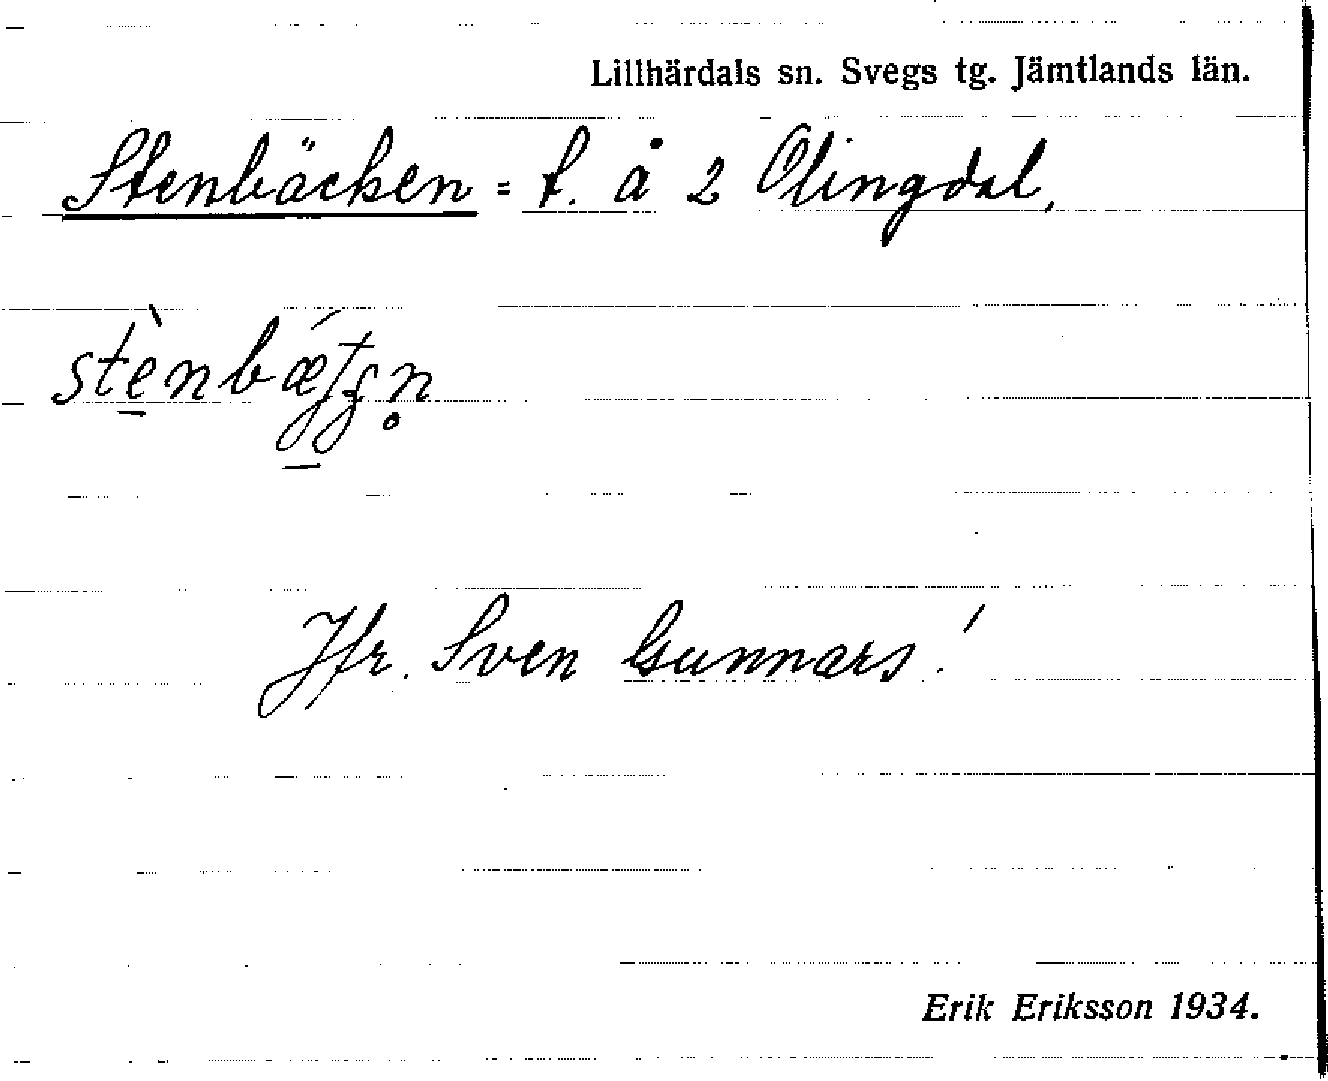 Lillhärdals sn. Svegs tg. Jämtlands län.
Stenbäcken = t. å 2 Olingdal,
Jfr. Sven Gunnars!
Erik Eriksson 1934.